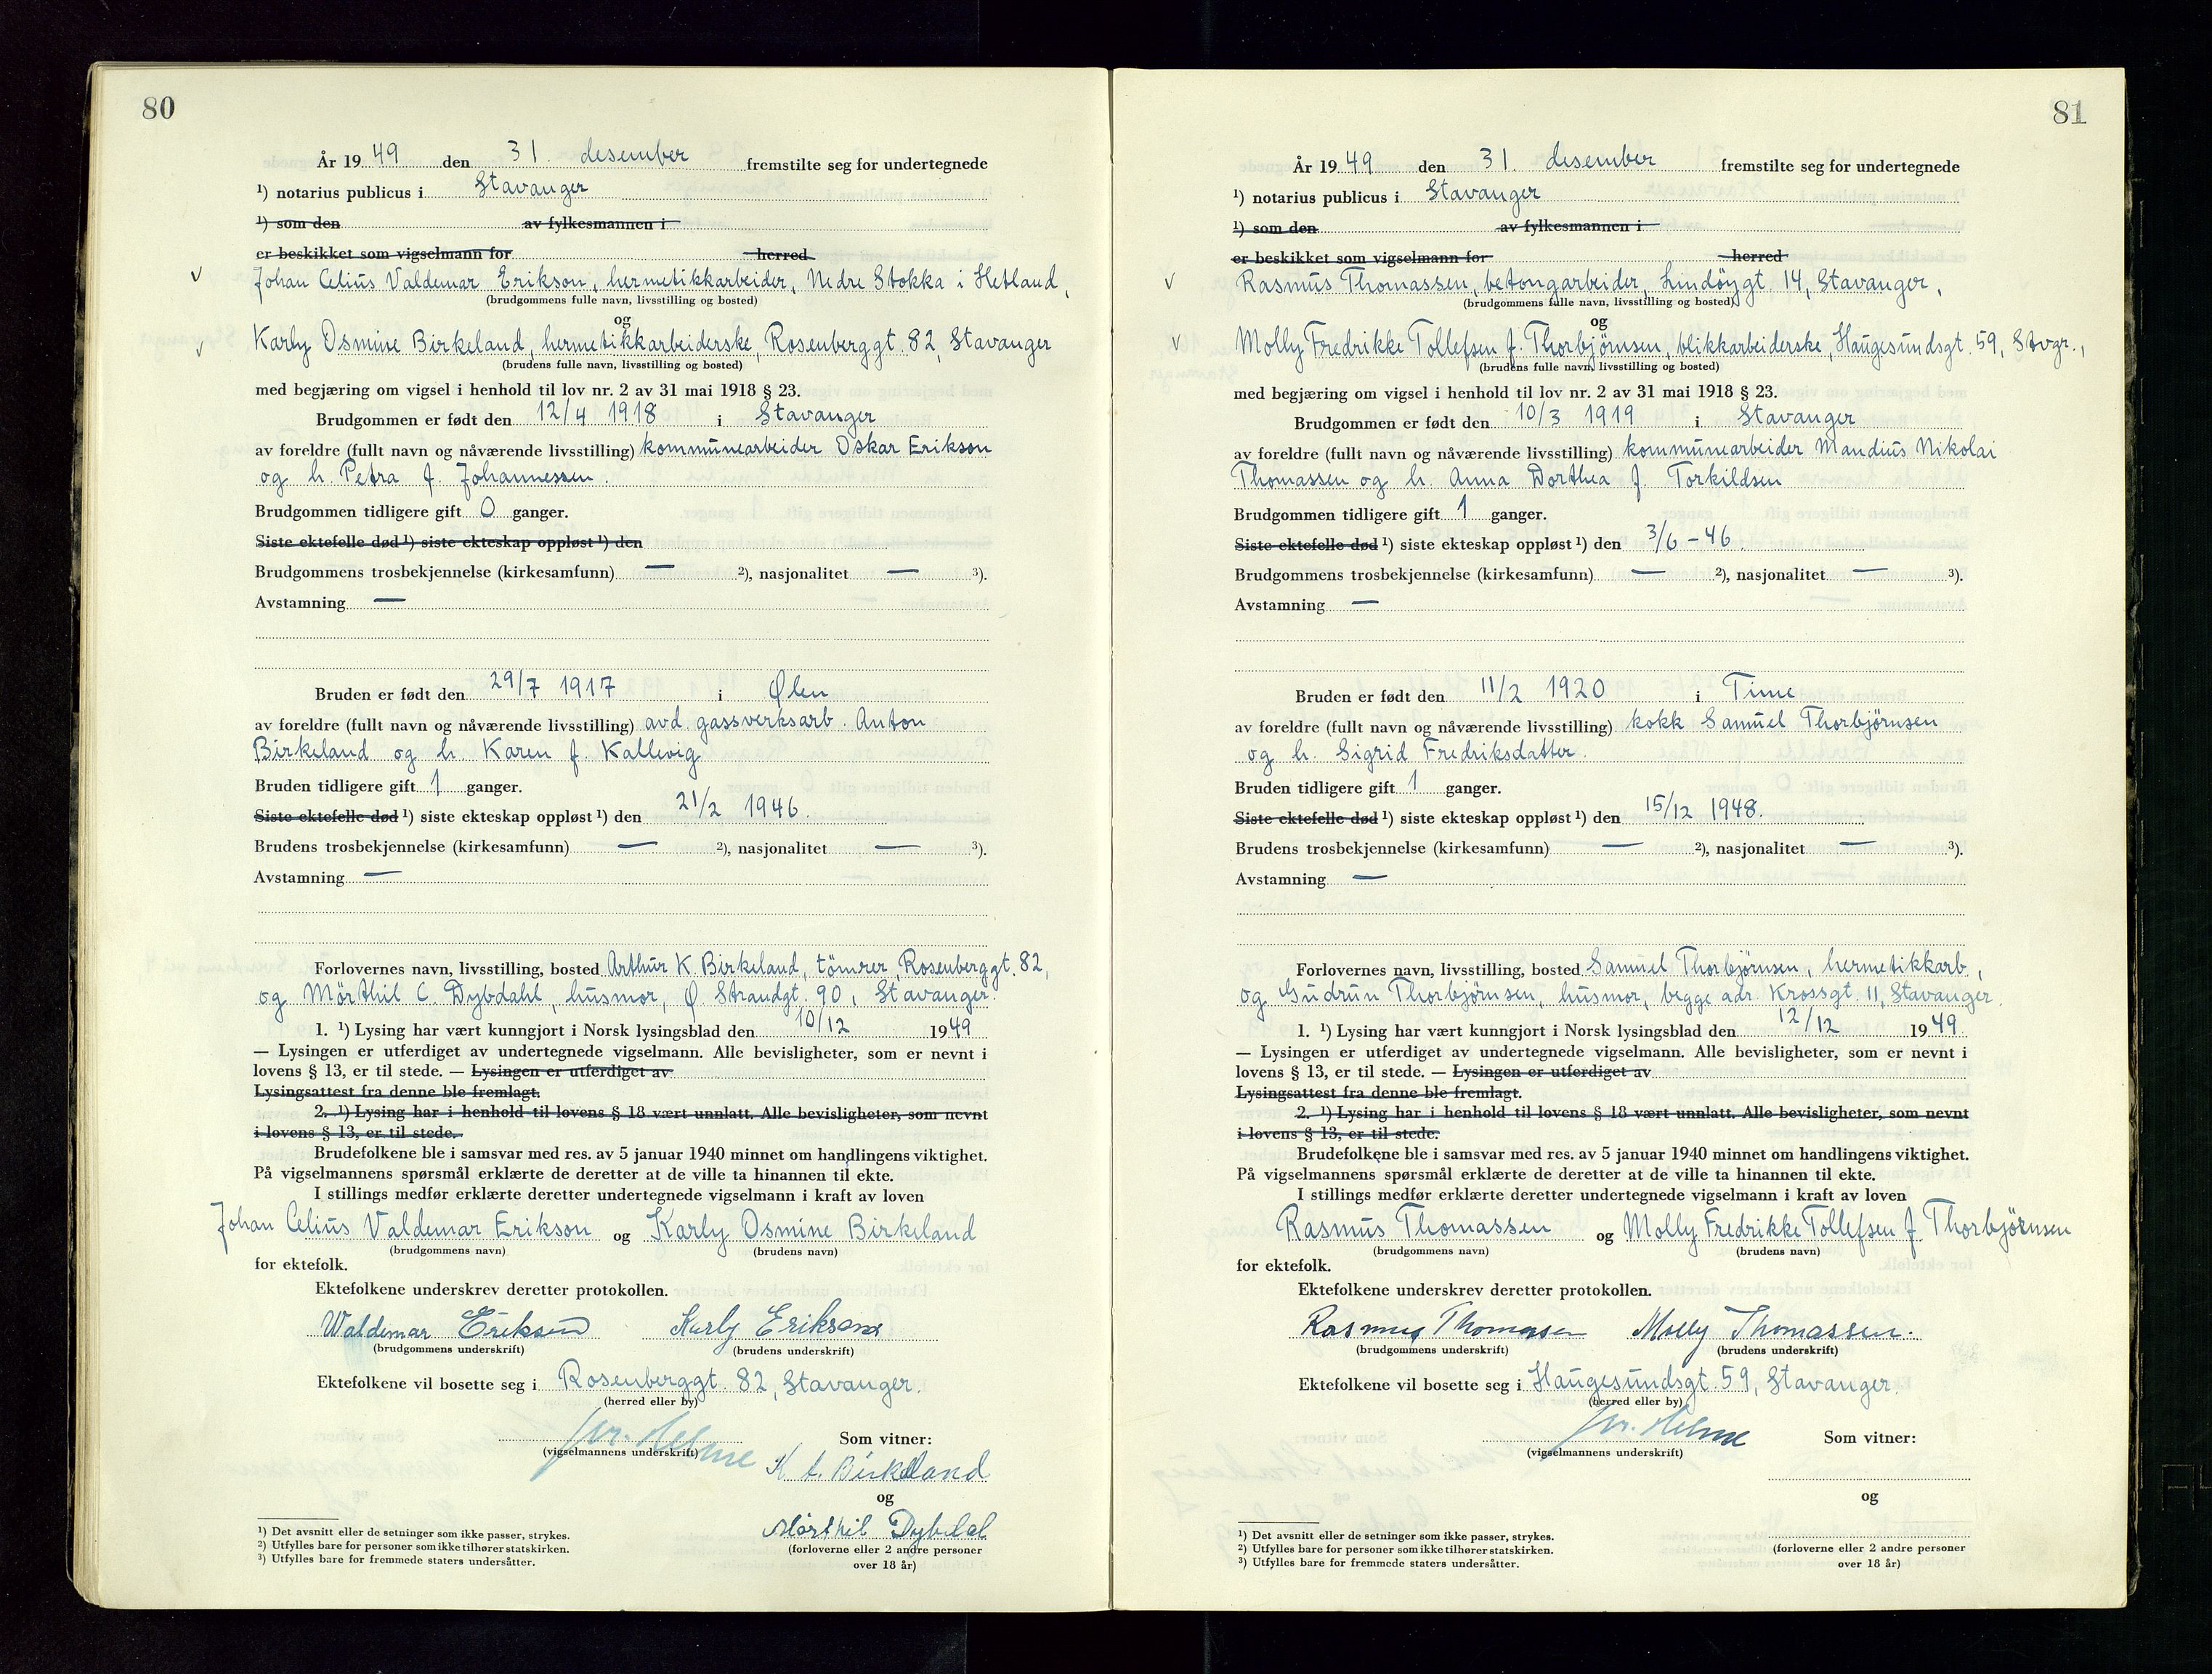 80
År 1949 den 31. desember fremstilte seg for undertegnede
¹) notarius publicus i Stavanger
¹) som den av fylkesmannen i
er beskikket som vigselmann for herred
√ Johan Celius Valdemar Erikson, hermetikkarbeider, Nedre Stokka i Hetland,
(brudgommens fulle navn, livsstilling og bosted)
og
√ Karly Osmine Birkeland, hermetikkarbeiderske, Rosenberggt. 82, Stavanger
(brudens fulle navn, livsstilling og bosted)
med begjæring om vigsel i henhold til lov nr. 2 av 31 mai 1918 § 23.
Brudgommen er født den 12/4 1918 i Stavanger
av foreldre (fullt navn og nåværende livsstilling) kommunearbeider Oskar Erikson
og h. Petra f. Johannessen.
Brudgommen tidligere gift 0 ganger.
Siste ektefelle død ¹) siste ekteskap oppløst ¹) den
Brudgommens trosbekjennelse (kirkesamfunn) — ²), nasjonalitet — ³).
Avstamning —
Bruden er født den 29/7 1917 i Ølen
av foreldre (fullt navn og nåværende livsstilling) avd. gassverksarb. Anton
Birkeland og h. Karen f. Kallevig
Bruden tidligere gift 1 ganger.
Siste ektefelle død ¹) siste ekteskap oppløst ¹) den 21/2 1946.
Brudens trosbekjennelse (kirkesamfunn) — ²), nasjonalitet — ³).
Avstamning —
Forlovernes navn, livsstilling, bosted Arthur K. Birkeland, tömrer, Rosenberggt. 82,
og Mörthil C. Dybdahl, husmor, Ø. Strandgt. 90, Stavanger.
1. ¹) Lysing har vært kunngjort i Norsk lysingsblad den 10/12 1949
— Lysingen er utferdiget av undertegnede vigselmann. Alle bevisligheter, som er nevnt i
lovens § 13, er til stede. — Lysingen er utferdiget av
Lysingsattest fra denne ble fremlagt.
2. ¹) Lysing har i henhold til lovens § 18 vært unnlatt. Alle bevisligheter, som nevnt
i lovens § 13, er til stede.
Brudefolkene ble i samsvar med res. av 5 januar 1940 minnet om handlingens viktighet.
På vigselmannens spørsmål erklærte de deretter at de ville ta hinannen til ekte.
I stillings medfør erklærte deretter undertegnede vigselmann i kraft av loven
Johan Celius Valdemar Erikson og Karly Osmine Birkeland
(brudgommens navn) (brudens navn)
for ektefolk.
Ektefolkene underskrev deretter protokollen.
Waldemar Erikson Karly Erikson
(brudgommens underskrift) (brudens underskrift)
Ektefolkene vil bosette seg i Rosenberggt. 82, Stavanger.
(herred eller by)
Helme
(vigselmannens underskrift)
Som vitner:
Birkeland
og
Mørthil Dybdal
(forloverne eller 2 andre personer
over 18 år)
¹) Det avsnitt eller de setninger som ikke passer, strykes.
²) Utfylles bare for personer som ikke tilhører statskirken.
³) Utfylles bare for fremmede staters undersåtter.
81
År 1949 den 31. desember fremstilte seg for undertegnede
¹) notarius publicus i Stavanger
¹) som den av fylkesmannen i
er beskikket som vigselmann for herred
√ Rasmus Thomassen, betongarbeider, Lindöygt 14, Stavanger,
(brudgommens fulle navn, livsstilling og bosted)
og
√ Molly Fredrikke Tollefsen f. Thorbjörnsen, blikkarbeiderske, Haugesundsgt. 59, Stvgr.,
(brudens fulle navn, livsstilling og bosted)
med begjæring om vigsel i henhold til lov nr. 2 av 31 mai 1918 § 23.
Brudgommen er født den 10/3 1919 i Stavanger
av foreldre (fullt navn og nåværende livsstilling) kommunearbeider Mandius Nikolai
Thomassen og h. Anna Dorthea f. Torkildsen
Brudgommen tidligere gift 1 ganger.
Siste ektefelle død ¹) siste ekteskap oppløst ¹) den 3/6 - 46.
Brudgommens trosbekjennelse (kirkesamfunn) — ²), nasjonalitet — ³).
Avstamning —
Bruden er født den 11/2 1920 i Time
av foreldre (fullt navn og nåværende livsstilling) kokk Samuel Thorbjörnsen
og h. Sigrid Fredriksdatter.
Bruden tidligere gift 1 ganger.
Siste ektefelle død ¹) siste ekteskap oppløst ¹) den 15/12 1948.
Brudens trosbekjennelse (kirkesamfunn) — ²), nasjonalitet — ³).
Avstamning —
Forlovernes navn, livsstilling, bosted Samuel Thorbjörnsen, hermetikkarb.,
og Gudrun Thorbjörnsen, husmor, begge adr. Krossgt. 11, Stavanger.
1. ¹) Lysing har vært kunngjort i Norsk lysingsblad den 12/12 1949.
— Lysingen er utferdiget av undertegnede vigselmann. Alle bevisligheter, som er nevnt i
lovens § 13, er til stede. — Lysingen er utferdiget av
Lysingsattest fra denne ble fremlagt.
2. ¹) Lysing har i henhold til lovens § 18 vært unnlatt. Alle bevisligheter, som nevnt
i lovens § 13, er til stede.
Brudefolkene ble i samsvar med res. av 5 januar 1940 minnet om handlingens viktighet.
På vigselmannens spørsmål erklærte de deretter at de ville ta hinannen til ekte.
I stillings medfør erklærte deretter undertegnede vigselmann i kraft av loven
Rasmus Thomassen og Molly Fredrikke Tollefsen f. Thorbjörnsen
(brudgommens navn) (brudens navn)
for ektefolk.
Ektefolkene underskrev deretter protokollen.
Rasmus Thomasen Molly Thomassen.
(brudgommens underskrift) (brudens underskrift)
Ektefolkene vil bosette seg i Haugesundsgt. 59, Stavanger.
(herred eller by)
Helme
(vigselmannens underskrift)
Som vitner:
og
(forloverne eller 2 andre personer
over 18 år)
¹) Det avsnitt eller de setninger som ikke passer, strykes.
²) Utfylles bare for personer som ikke tilhører statskirken.
³) Utfylles bare for fremmede staters undersåtter.